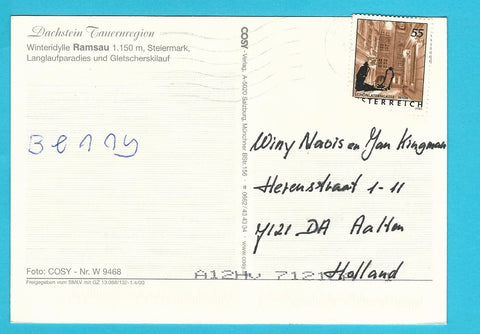 Dachstein Tauernregion
Winteridylle Ramsau 1.150 m, Steiermark,
Langlaufparadies und Gletscherskilauf
Benny
Foto: COSY - Nr. W 9468
Freigegeben vom SMLV mit GZ 13.088/132-1.4/00
COSY -Verlag, A-5020 Salzburg, Münchner BStr.156 · ☎ 0662/43 43 34 · www.cosy
55
ÖSTERREICH
Winy Navis en Jan Kingman
Herenstraat 1-11
7121 DA Aalten
A12HV 7121
Holland